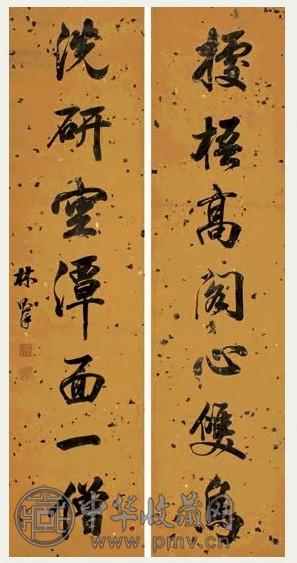 據梧高閣心雙鳥
洗研空潭面一僧
林則
中华收藏网
www.pmv.cn